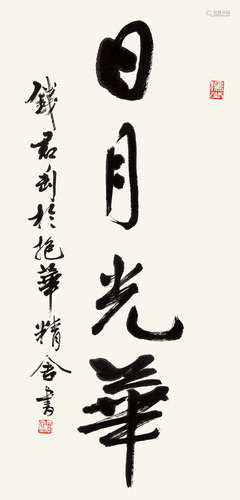 日月光華
錢君匋於抱華精舍書